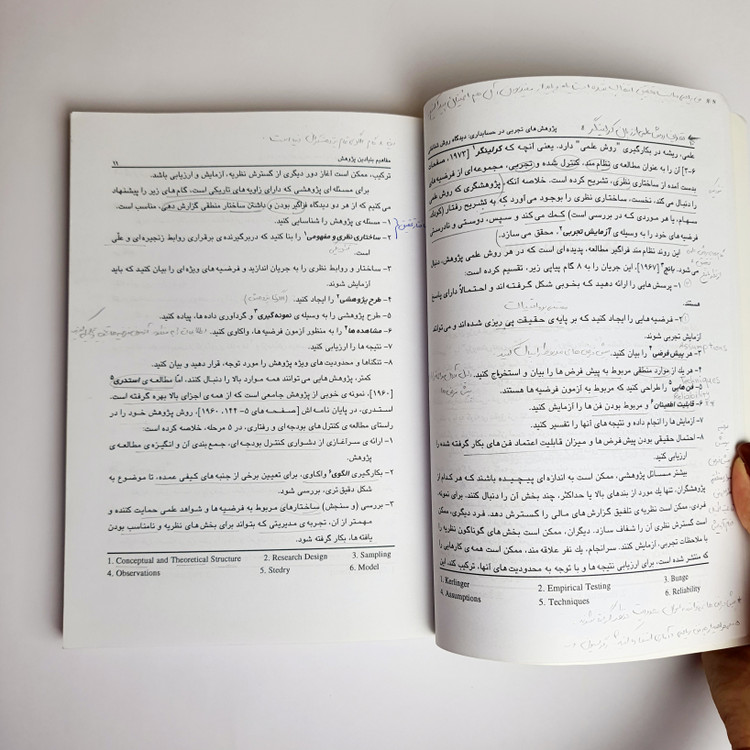 پژوهش های تجربی در حسابداری: دیدگاه روش شناختی
علمی، ریشه در بکارگیری "روش علمی" دارد. یعنی آنچه که کرلینگر¹ [۱۹۷۳، صفحات
۶-۲] آن را به عنوان مطالعه ی نظام مند، کنترل شده و تجربی، مجموعه ای از فرضیه های
بدست آمده از ساختاری نظری، تشریح کرده است. خلاصه آنکه پژوهشگری که روش علمی
را دنبال می کند، نخست، ساختاری نظری را بوجود می آورد که به تشریح رفتار (کوتان
سهام، یا هر موردی که در بررسی است) کمک می کند و سپس، درستی و نادرستی
فرضیه های خود را به وسیله ی آزمایش تجربی²، محقق می سازد.
این روند نظام مند فراگیر مطالعه، پدیده ای است که در هر روش علمی پژوهش، دنبال
می شود. بانج³ [۱۹۶۷]، این جریان را به ۸ گام پیاپی زیر، تقسیم کرده است:
۱- پرسش هایی را ارائه دهید که بخوبی شکل گرفته اند و احتمالاً دارای پاسخ
هستند.
۲- فرضیه هایی را ایجاد کنید که بر پایه ی حقیقت پی ریزی شده اند و می توانند
آزمایش تجربی شوند.
۳- هر پیش فرضی⁴ را بیان کنید.
۴- هر یک از موارد منطقی مربوط به پیش فرض ها را بیان و استخراج کنید.
۵- فن هایی⁵ را طراحی کنید که مربوط به آزمون فرضیه ها هستند.
۶- قابلیت اطمینان⁶ و مربوط بودن فن ها را آزمایش کنید.
۷- آزمایش ها را انجام داده و نتیجه های آنها را تفسیر کنید.
۸- احتمال حقیقی بودن پیش فرض ها و میزان قابلیت اعتماد فن های بکار گرفته شده را
ارزیابی کنید.
بیشتر مسائل پژوهشی، ممکن است به اندازه ای پیچیده باشند که هر کدام از
پژوهشگران، تنها یک مورد از بندهای بالا یا حداکثر، چند بخش آن را دنبال کنند. برای نمونه
فردی، ممکن است نظریه ی تلفیق گزارش های مالی را گسترش دهد. فرد دیگری، ممکن
است گسترش نظری آن را شفاف سازد. دیگران، ممکن است بخش های گوناگون نظریه را
با ملاحظات تجربی، آزمایش کنند. سرانجام، یک نفر علاقه مند، ممکن است همه ی کارهایی را
که منتشر شده است، برای ارزیابی نتیجه ها و با توجه به محدودیت های آنها، ترکیب کند. این
1. Kerlinger 2. Empirical Testing 3. Bunge
4. Assumptions 5. Techniques 6. Reliability
مفاهیم بنیادین پژوهش ۱۱
ترکیب، ممکن است آغاز دور دیگری از گسترش نظریه، آزمایش و ارزیابی باشد.
برای مسئله ای پژوهشی که دارای زاویه های تاریکی است، گام های زیر را پیشنهاد
می کنیم که از هر دو دیدگاه فراگیر بودن و داشتن ساختار منطقی گزارش دهی، مناسب است.
۱- مسئله ی پژوهش را شناسایی کنید.
۲- ساختاری نظری و مفهومی¹ را بنا کنید که دربرگیرنده ی برقراری روابط زنجیره ای و علّی
است.
۳- ساختار و روابط نظری را به جریان اندازید و فرضیه های ویژه ای را بیان کنید که باید
آزمایش شوند.
۴- طرح پژوهشی² را ایجاد کنید.
۵- طرح پژوهشی را به وسیله ی نمونه گیری³ و گردآوری داده ها، پیاده کنید.
۶- مشاهده ها⁴ را به منظور آزمون فرضیه ها، واکاوی کنید.
۷- نتیجه ها را ارزیابی کنید.
۸- تنگناها و محدودیت های ویژه پژوهش را مورد توجه، قرار دهید و بیان کنید.
کمتر، پژوهش هایی می توانند همه موارد بالا را دنبال کنند، امّا مطالعه ی استدری⁵
[۱۹۶۰]، نمونه ی خوبی از پژوهش جامعی است که از همه ی اجزای بالا بهره گرفته است.
استدری، در پایان نامه اش [صفحه های ۵- ۱۴۴، ۱۹۶۰]، روش پژوهش خود را در
راستای مطالعه ی کنترل های بودجه ای و رفتاری، در ۵ مرحله، خلاصه کرده است:
۱- ارائه ی سرآغازی از دشواری کنترل بودجه ای، جمع بندی آن و انگیزه ی مطالعه ی
پژوهش.
۲- بکارگیری الگوی⁶ واکاوی، برای تعیین برخی از جنبه های کیفی عمده، تا موضوع به
شکل دقیق تری، بررسی شود.
۳- بررسی (و سنجش) ساختارهای مربوط به فرضیه ها و شواهد علمی حمایت کننده و
مهمتر از آن، تجربه ی مدیریتی که بتواند برای بخش های نظریه و نامناسب بودن
یافته ها، بکار گرفته شود.
1. Conceptual and Theoretical Structure 2. Research Design 3. Sampling
4. Observations 5. Stedry 6. Model